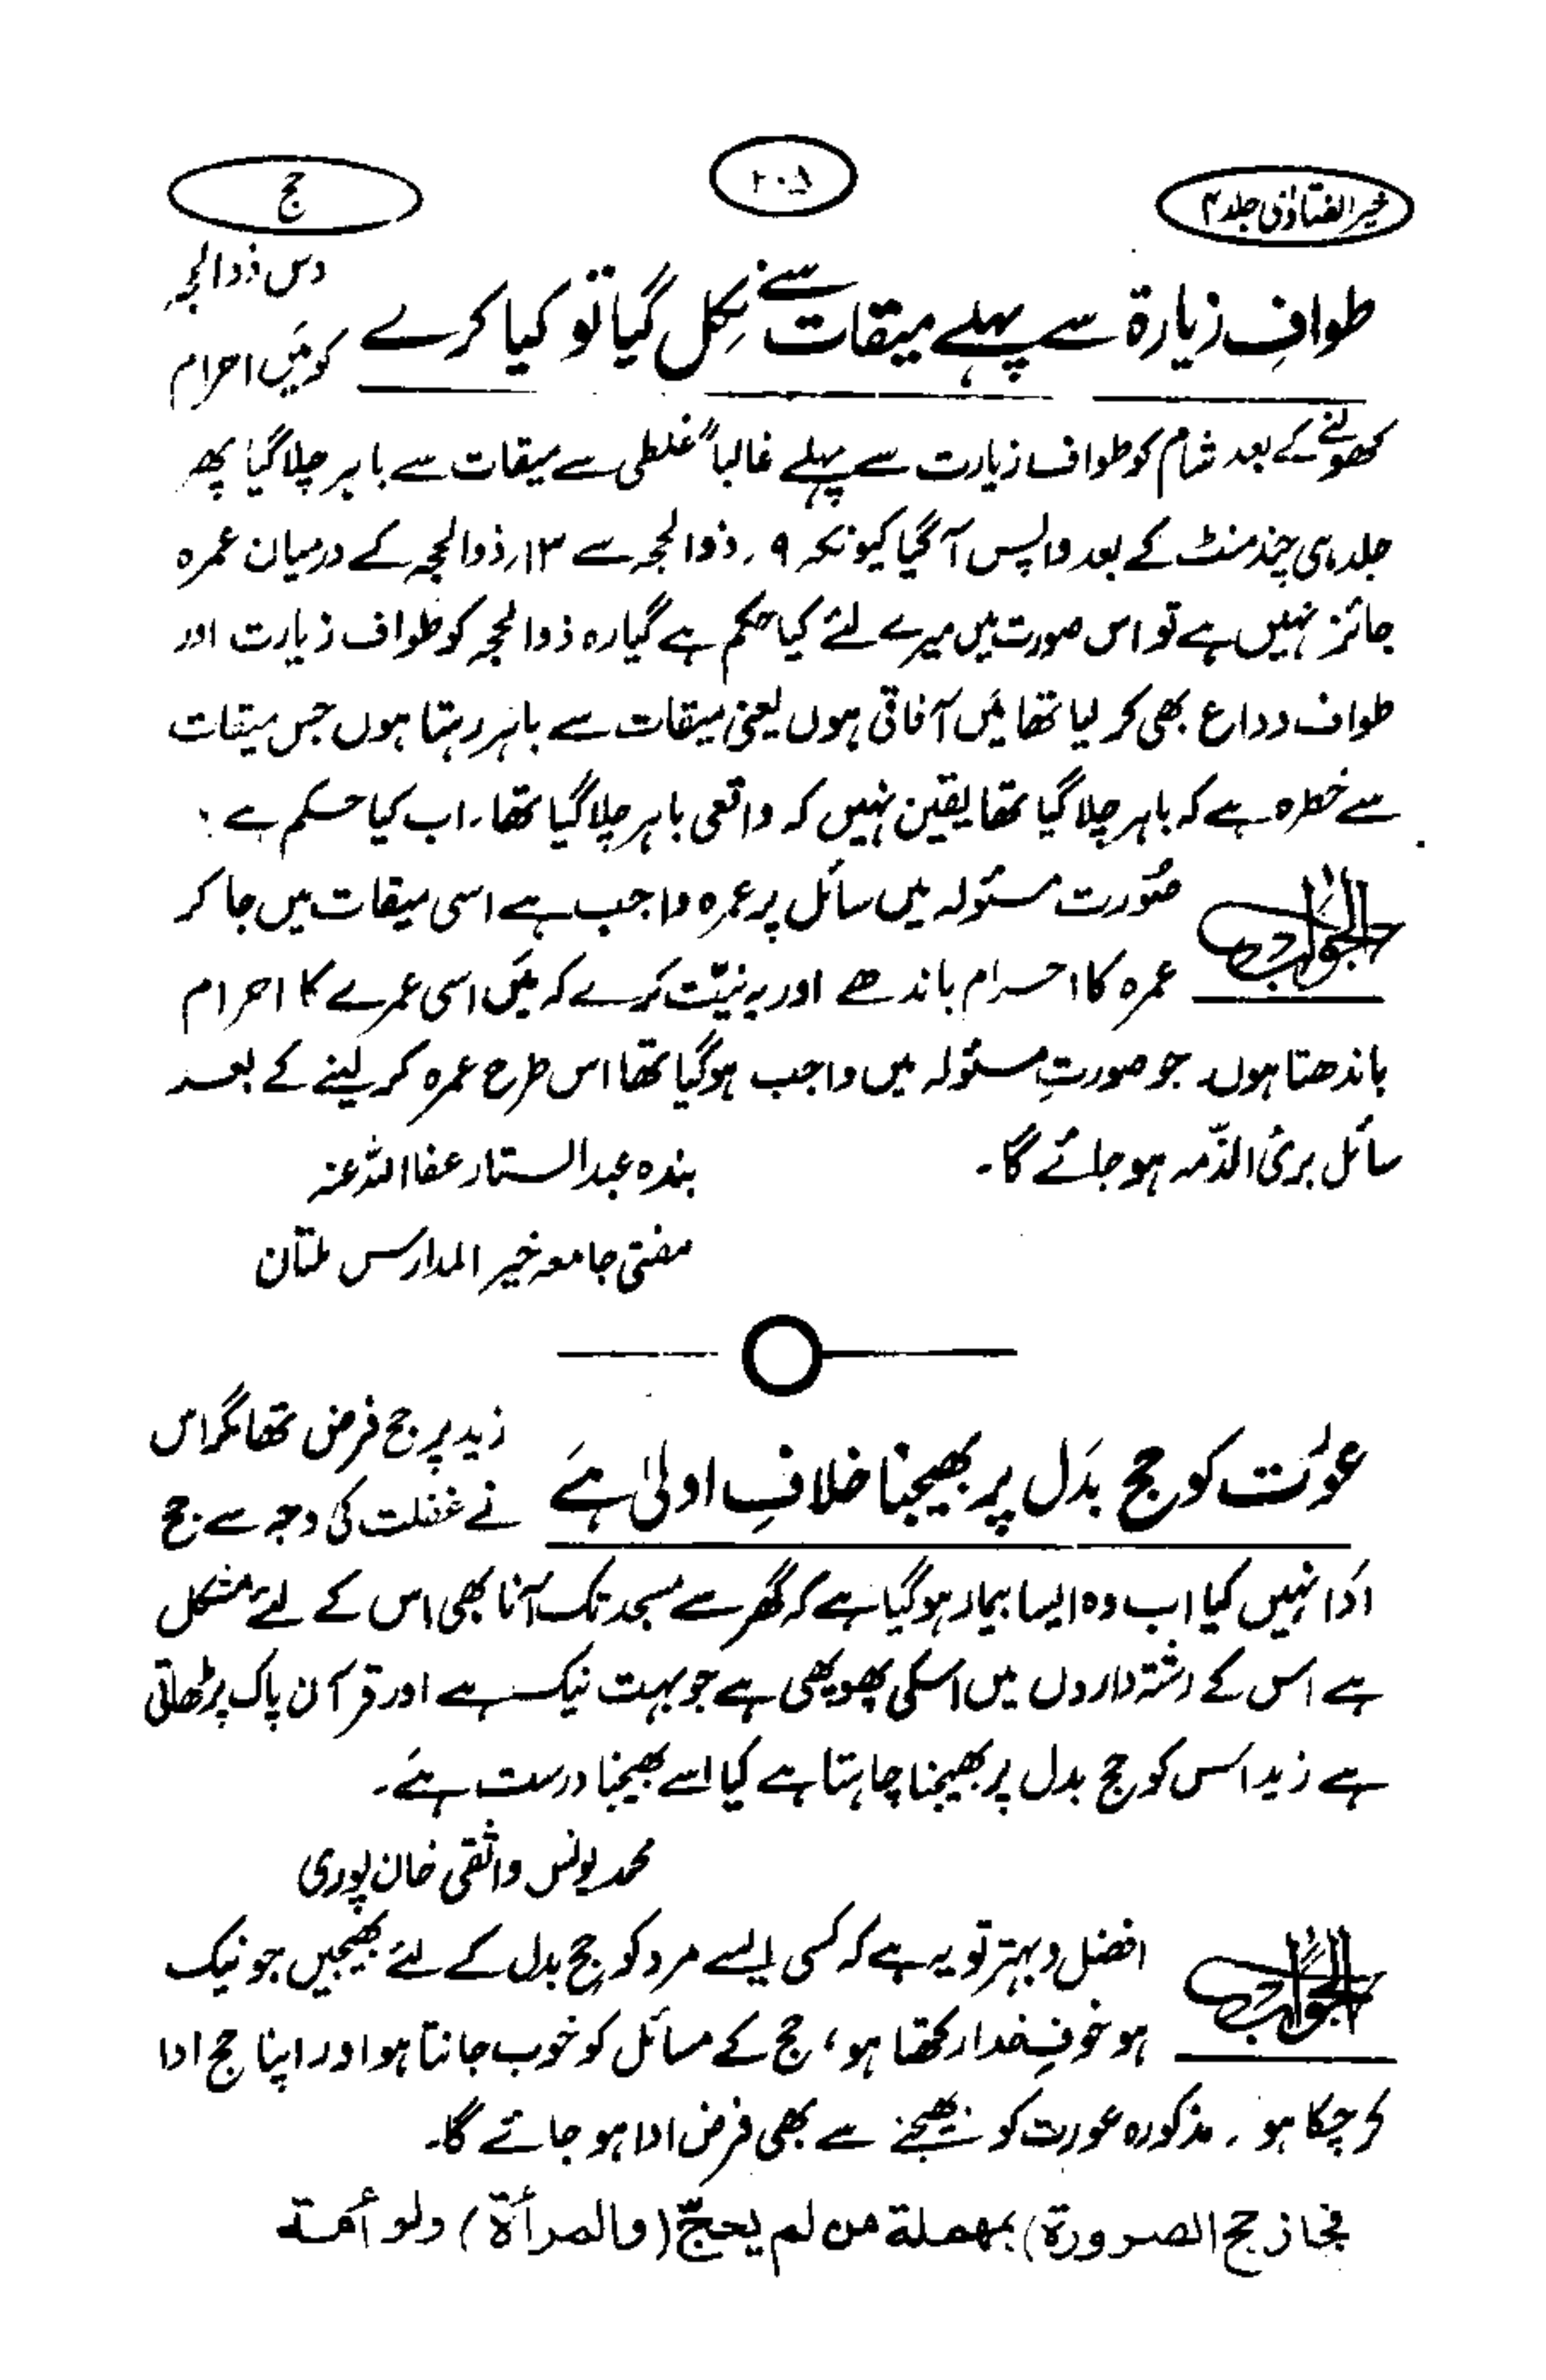 خیر الفتاوٰی جلد ۴
۲۰۵
حج
طوافِ زیارۃ سے پہلے میقات سے نِکل گیا تو کیا کرے
دس ذوالحجہ
کو مَیں احرام
کھولنے کے بعد شام کو طواف زیارت سے پہلے غالباً غلطی سے میقات سے باہر چلا گیا پھر
جلد ہی چند منٹ کے بعد واپس آگیا کیونکہ ۹ر ذوالحجہ سے ۱۳ر ذوالحجہ کے درمیان عمرہ
جائز نہیں ہے تو اس صورت میں میرے لئے کیا حکم ہے گیارہ ذوالحجہ کو طواف زیارت اور
طواف وداع بھی کر لیا تھا مَیں آفاقی ہوں یعنی میقات سے باہر رہتا ہوں جس میقات
سے خطرہ ہے کہ باہر چلا گیا تھا یقین نہیں کہ واقعی باہر چلا گیا تھا۔ اب کیا حسکم ہے ؟
الجواب
صورت مسئولہ میں سائل پر عمرہ واجب ہے اسی میقات میں جا کر
عمرہ کا احرام باندھے اور یہ نیّت کرے کہ مَیں اسی عمرے کا احرام
باندھتا ہوں۔ جو صورتِ مسئولہ میں واجب ہوگیا تھا اس طرح عمرہ کر لینے کے بعد
سائل بریٔ الذّمہ ہو جائے گا۔
بندہ عبدالستار عفا اللہ عنہ
مفتی جامعہ خیر المدارس ملتان
عورت کو حج بدَل پر بھیجنا خلافِ اولیٰ ہَے
زید پر حج فرض تھا مگر اس
نے غفلت کی وجہ سے حج
ادَا نہیں کیا اب وہ ایسا بیمار ہوگیا ہے کہ گھر سے مسجد تک آنا بھی اس کے لئے مشکل
ہے اس کے رشتہ داروں میں اسکی پھوپھی ہے جو بہت نیک ہے اور قرآن پاک پڑھاتی
ہے زید اس کو حج بدل پر بھیجنا چاہتا ہے کیا اسے بھیجنا درست ہَے۔
محمد یونس واثقی خان پوری
الجواب
افضل و بہتر تو یہ ہے کہ کسی ایسے مرد کو حج بدل کے لئے بھیجیں جو نیک
ہو خوفِ خدا رکھتا ہو، حج کے مسائل کو خوب جانتا ہو اور اپنا حج ادا
کر چکا ہو ۔ مذکورہ عورت کو بھیجنے سے بھی فرض ادا ہو جائے گا۔
فجاز حج الصرورة) بمهملة من لم يحجّ (والمرأة) ولو أمة